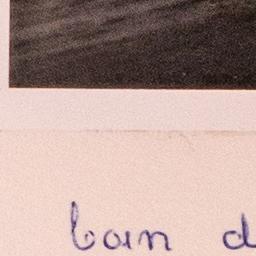 bain d